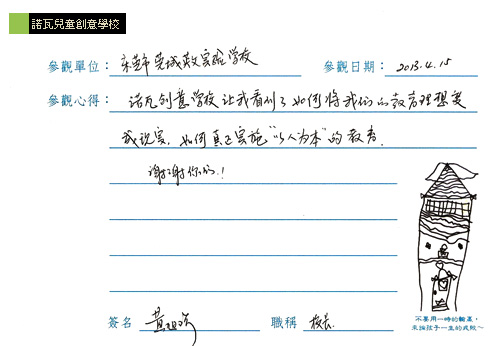 諾瓦兒童創意學校
參觀單位: 东莞市莞城 实验学校
參觀日期: 2013.4.15
參觀心得: 诺瓦创意学校让我看到了如何将我们的教育理想变
成现实,如何真正实施“以人为本”的教育.
谢谢你们!
簽名 黄
職稱 校长
不要用一時的輸贏,
來論孩子一生的成敗~